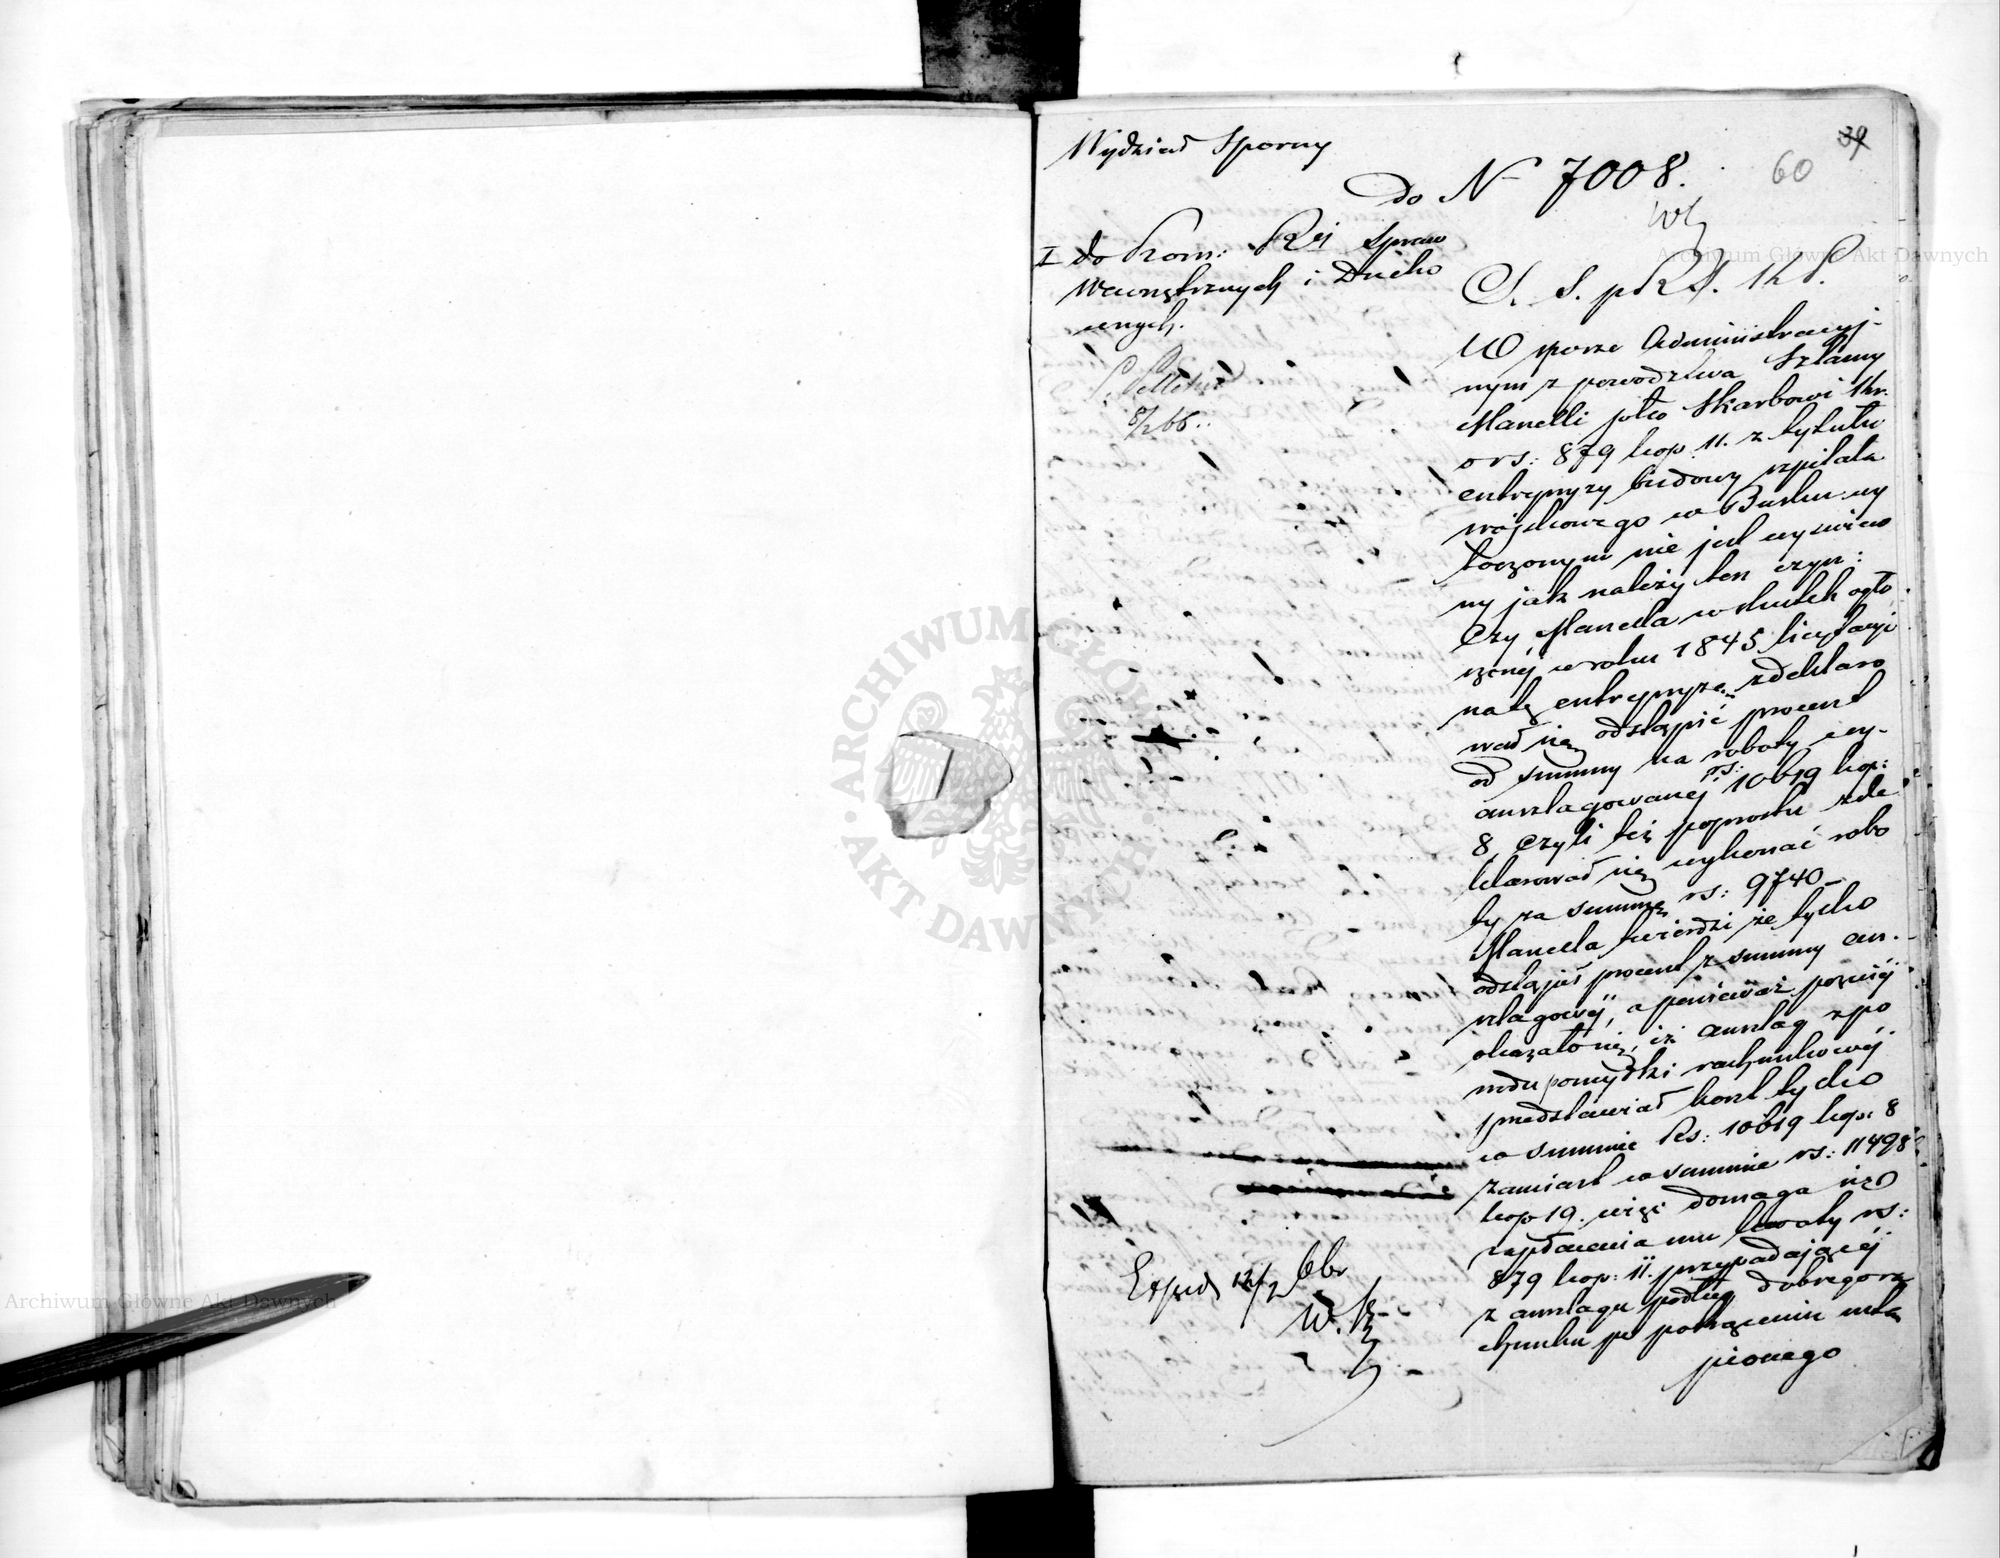 Wydział Sporny
39
60
do N 7008.
I do Kom: Rej Spraw
Wewnętrznych i Ducho
wnych.
8/2 66..
W sporze Administracyj-
nym z powodztwa Szlamy
Manelli pko Skarbowi Kr.
o rs: 879 kop 11. z tytułu
entrepryzy budowy szpitala
wojskowego w Busku wy
toczonym nie jest wyświeco
ny jak należy ten czyn:
Czy Manella w skutek ogło
szonéj w roku 1845 licytacyi
na tę entrepryzę, zdeklaro
wał się odstąpić procent
od summy na roboty wy-
anszlagowanej rs: 10619 kop:
8, czyli też poprostu zde
klarował się wykonać robo
ty za summę rs: 9740-
Manella twierdzi że tylko
odstąpił procent z summy an-
szlagowéj, a ponieważ poźniéj
okazało się, iż anszlag z po
wodu pomyłki rachunkowéj
przedstawiał koszt tylko
w summie Rs: 10619 kop: 8
zamiast w summie rs: 11498
kop 19. więc domaga się
zapłacenia mu kwoty rs:
879 kop: 11. przypadającéj
z anszlagu podług dobrego ra
chunku po potrąceniu ustą
pionego
Exped 12/2 66r
W. K
ARCHIWUM GŁÓWNE AKT DAWNYCH
Archiwum Główne Akt Dawnych
Archiwum Główne Akt Dawnych